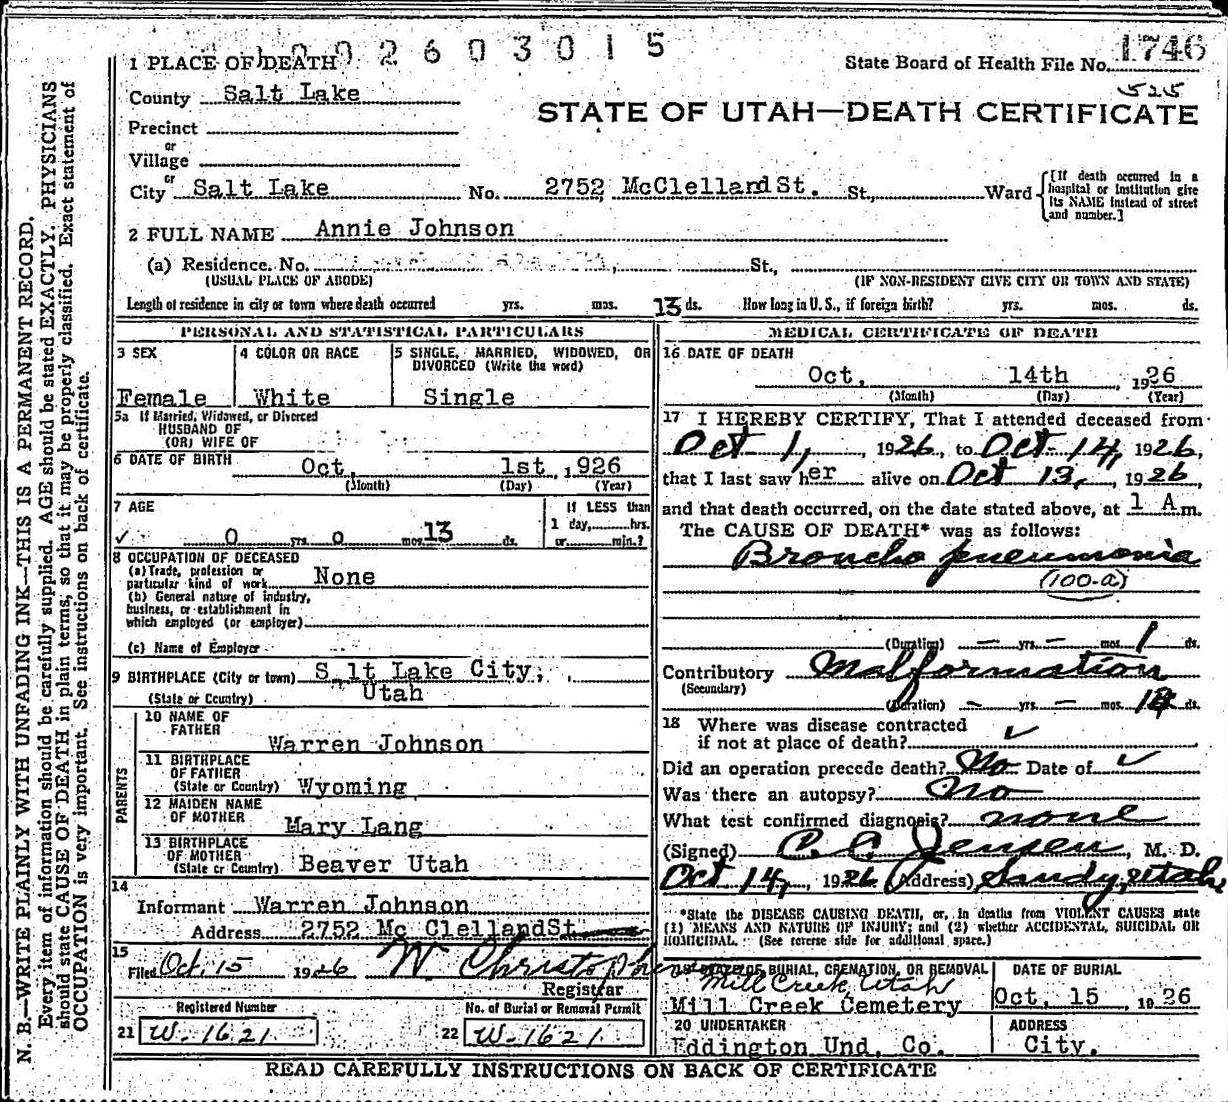 N. B.—WRITE PLAINLY WITH UNFADING INK—THIS IS A PERMANENT RECORD.
Every item of information should be carefully supplied. AGE should be stated EXACTLY. PHYSICIANS
should state CAUSE OF DEATH in plain terms, so that it may be properly classified. Exact statement of
OCCUPATION is very important. See instructions on back of certificate.
2603015
1 PLACE OF DEATH
State Board of Health File No. 1746
525
County Salt Lake
STATE OF UTAH—DEATH CERTIFICATE
Precinct
or
Village
or
City Salt Lake No. 2752 McClelland St. St., Ward
[If death occurred in a
hospital or institution give
its NAME instead of street
and number.]
2 FULL NAME Annie Johnson
(a) Residence. No. St.,
(USUAL PLACE OF ABODE) (IF NON-RESIDENT GIVE CITY OR TOWN AND STATE)
Length of residence in city or town where death occurred yrs. mos. 13 ds. How long in U. S., if foreign birth? yrs. mos. ds.
PERSONAL AND STATISTICAL PARTICULARS
3 SEX
Female
4 COLOR OR RACE
White
5 SINGLE, MARRIED, WIDOWED, OR
DIVORCED (Write the word)
Single
5a If Married, Widowed, or Divorced
HUSBAND OF
(OR) WIFE OF
6 DATE OF BIRTH Oct. 1st ,1926
(Month) (Day) (Year)
7 AGE
0 yrs. 0 mos. 13 ds.
If LESS than
1 day, hrs.
or min.?
8 OCCUPATION OF DECEASED
(a) Trade, profession or
particular kind of work None
(b) General nature of industry,
business, or establishment in
which employed (or employer)
(c) Name of Employer
9 BIRTHPLACE (City or town) S lt Lake City,
(State or Country) Utah
PARENTS
10 NAME OF
FATHER
Warren Johnson
11 BIRTHPLACE
OF FATHER
(State or Country) Wyoming
12 MAIDEN NAME
OF MOTHER
Mary Lang
13 BIRTHPLACE
OF MOTHER
(State or Country) Beaver Utah
14
Informant Warren Johnson
Address 2752 Mc Clelland St
15
Filed Oct. 15 1926 W Christopherson
Registrar
Registered Number
21 W-1621
No. of Burial or Removal Permit
22 W-1621
MEDICAL CERTIFICATE OF DEATH
16 DATE OF DEATH
Oct. 14th , 1926
(Month) (Day) (Year)
17 I HEREBY CERTIFY, That I attended deceased from
Oct 1, 1926, to Oct-14, 1926,
that I last saw her alive on Oct 13, 1926,
and that death occurred, on the date stated above, at 1 A m.
The CAUSE OF DEATH* was as follows:
Broncho pneumonia
(100-a)
(Duration) — yrs. — mos. 1 ds.
Contributory Malformation
(Secondary)
(Duration) — yrs — mos. 14 ds.
18 Where was disease contracted
if not at place of death? ✓
Did an operation precede death? No Date of ✓
Was there an autopsy? No
What test confirmed diagnosis? none
(Signed) C. C. Jensen, M. D.
Oct 14, 1926 (Address) Sandy, Utah
*State the DISEASE CAUSING DEATH, or, in deaths from VIOLENT CAUSES state
(1) MEANS AND NATURE OF INJURY; and (2) whether ACCIDENTAL, SUICIDAL OR
HOMICIDAL. (See reverse side for additional space.)
19 PLACE OF BURIAL, CREMATION, OR REMOVAL
Mill Creek Utah
Mill Creek Cemetery
DATE OF BURIAL
Oct. 15 1926
20 UNDERTAKER
Eddington Und. Co.
ADDRESS
City.
READ CAREFULLY INSTRUCTIONS ON BACK OF CERTIFICATE